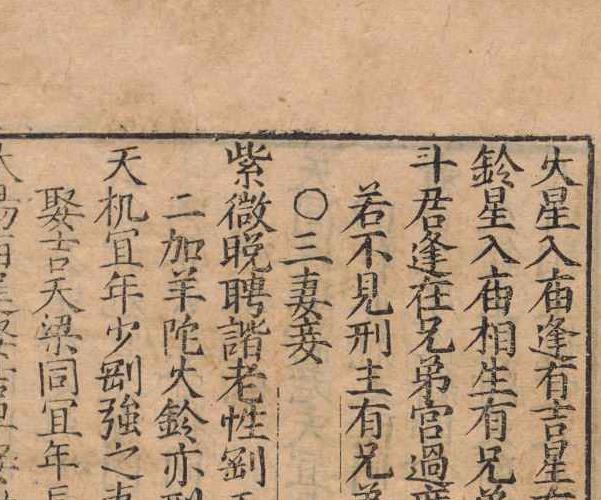 火星入庙逢有吉星
鈴星入庙相生有兄
斗君逢在兄弟宮過
若不見刑主有兄弟
〇三妻妾
紫微晚聘諧老性剛
二加羊陀火鈴亦
天机宜年少剛強之妻
娶吉天梁同宜年長